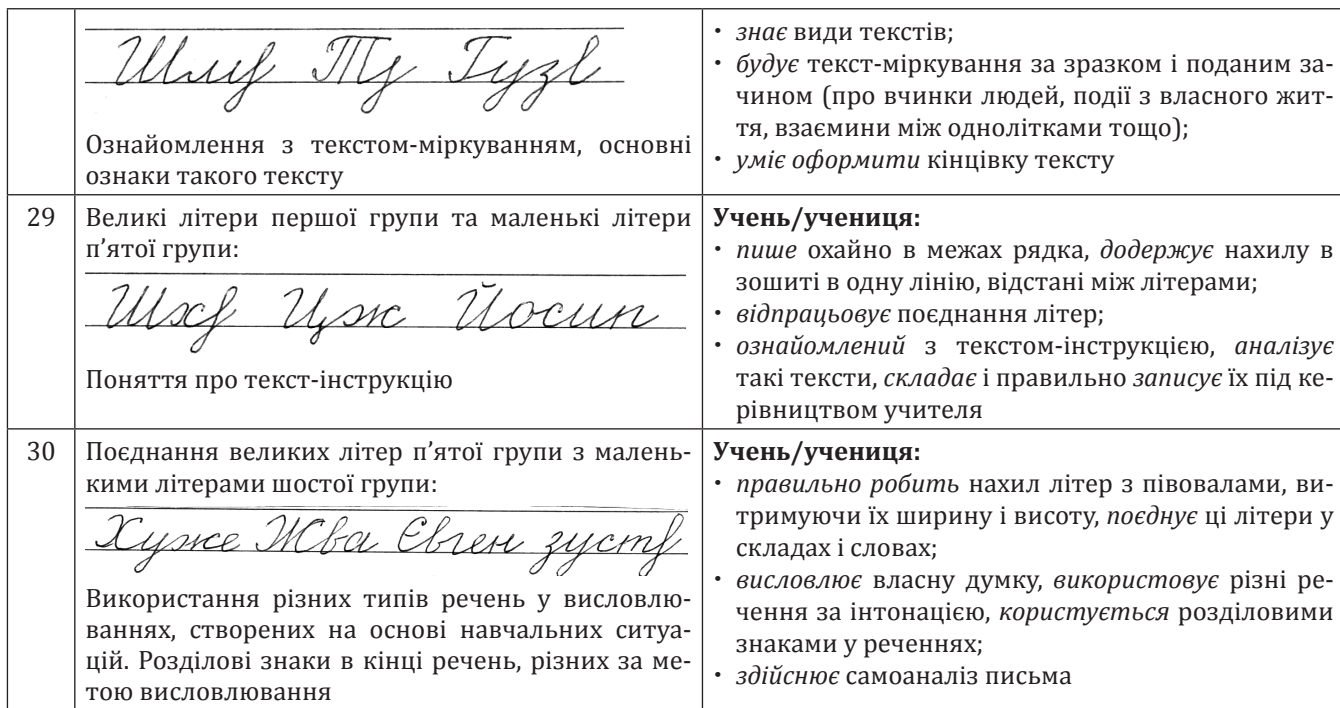 Шлф Ту Гузв
Ознайомлення з текстом-міркуванням, основні
ознаки такого тексту
• знає види текстів;
• будує текст-міркування за зразком і поданим за-
чином (про вчинки людей, події з власного жит-
тя, взаємини між однолітками тощо);
• уміє оформити кінцівку тексту
29
Великі літери першої групи та маленькі літери
п’ятої групи:
Шхф Цж Йосип
Поняття про текст-інструкцію
Учень/учениця:
• пише охайно в межах рядка, додержує нахилу в
зошиті в одну лінію, відстані між літерами;
• відпрацьовує поєднання літер;
• ознайомлений з текстом-інструкцією, аналізує
такі тексти, складає і правильно записує їх під ке-
рівництвом учителя
30
Поєднання великих літер п’ятої групи з малень-
кими літерами шостої групи:
Хуже Жва Євген
Використання різних типів речень у висловлю-
ваннях, створених на основі навчальних ситуа-
цій. Розділові знаки в кінці речень, різних за ме-
тою висловлювання
Учень/учениця:
• правильно робить нахил літер з півовалами, ви-
тримуючи їх ширину і висоту, поєднує ці літери у
складах і словах;
• висловлює власну думку, використовує різні ре-
чення за інтонацією, користується розділовими
знаками у реченнях;
• здійснює самоаналіз письма